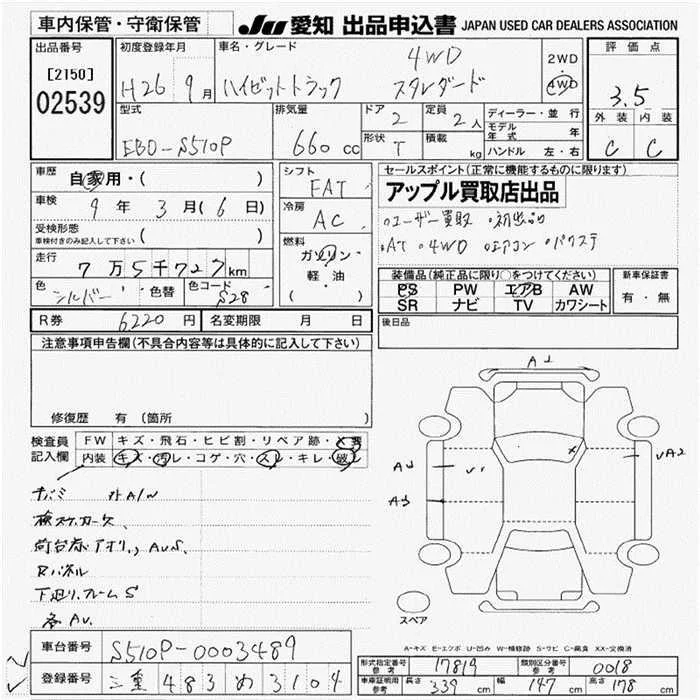 車内保管・守衛保管
JU 愛知 出品申込書 JAPAN USED CAR DEALERS ASSOCIATION
出品番号
[2150]
02539
初度登録年月
H26 9月
車名・グレード
4WD
ハイゼットトラック スタンダード
2WD
4WD
評価点
3.5
外装 内装
C C
型式
EBD-S510P
排気量
660 cc
ドア 2
形状 T
定員 2人
積載 kg
ディーラー・並行
モデル年式 年
ハンドル 左・右
車歴 自家用・( )
車検 9年3月(6日)
受検形態
車検付きのみ記入して下さい ( )
走行 7万5千727km
色 シルバー 色替 色コード S28
シフト
FAT
冷房
AC
燃料
ガソリン
軽・油
( )
セールスポイント(正常に機能するものに限ります)
アップル買取店出品
・ユーザー買取 ・初出品
・AT ・4WD ・エアコン ・パワステ
装備品(純正品に限り○をつけてください)
PS PW エアB AW
SR ナビ TV カワシート
新車保証書
有・無
R券 6220円 名変期限 月 日
後日品
注意事項申告欄(不具合内容等は具体的に記入して下さい)
修復歴 有(箇所
検査員記入欄
FW キズ・飛石・ヒビ割・リペア跡・
内装 キズ・汚レ・コゲ・穴・スレ・キレ・破レ
外A/W
下廻り、フレームS
各AU
A1
A3
A3
U1
UA2
X
スペア
A-キズ E-エクボ U-凹み W-補修跡 S-サビ C-腐食 XX-交換済
車台番号 S510P-0003489
登録番号 三重 483 め 3104
型式指定番号 参考 17819 類別区分番号 参考 0018
車庫証明用 参考 長さ 339 cm 幅 147 cm 高さ 178 cm